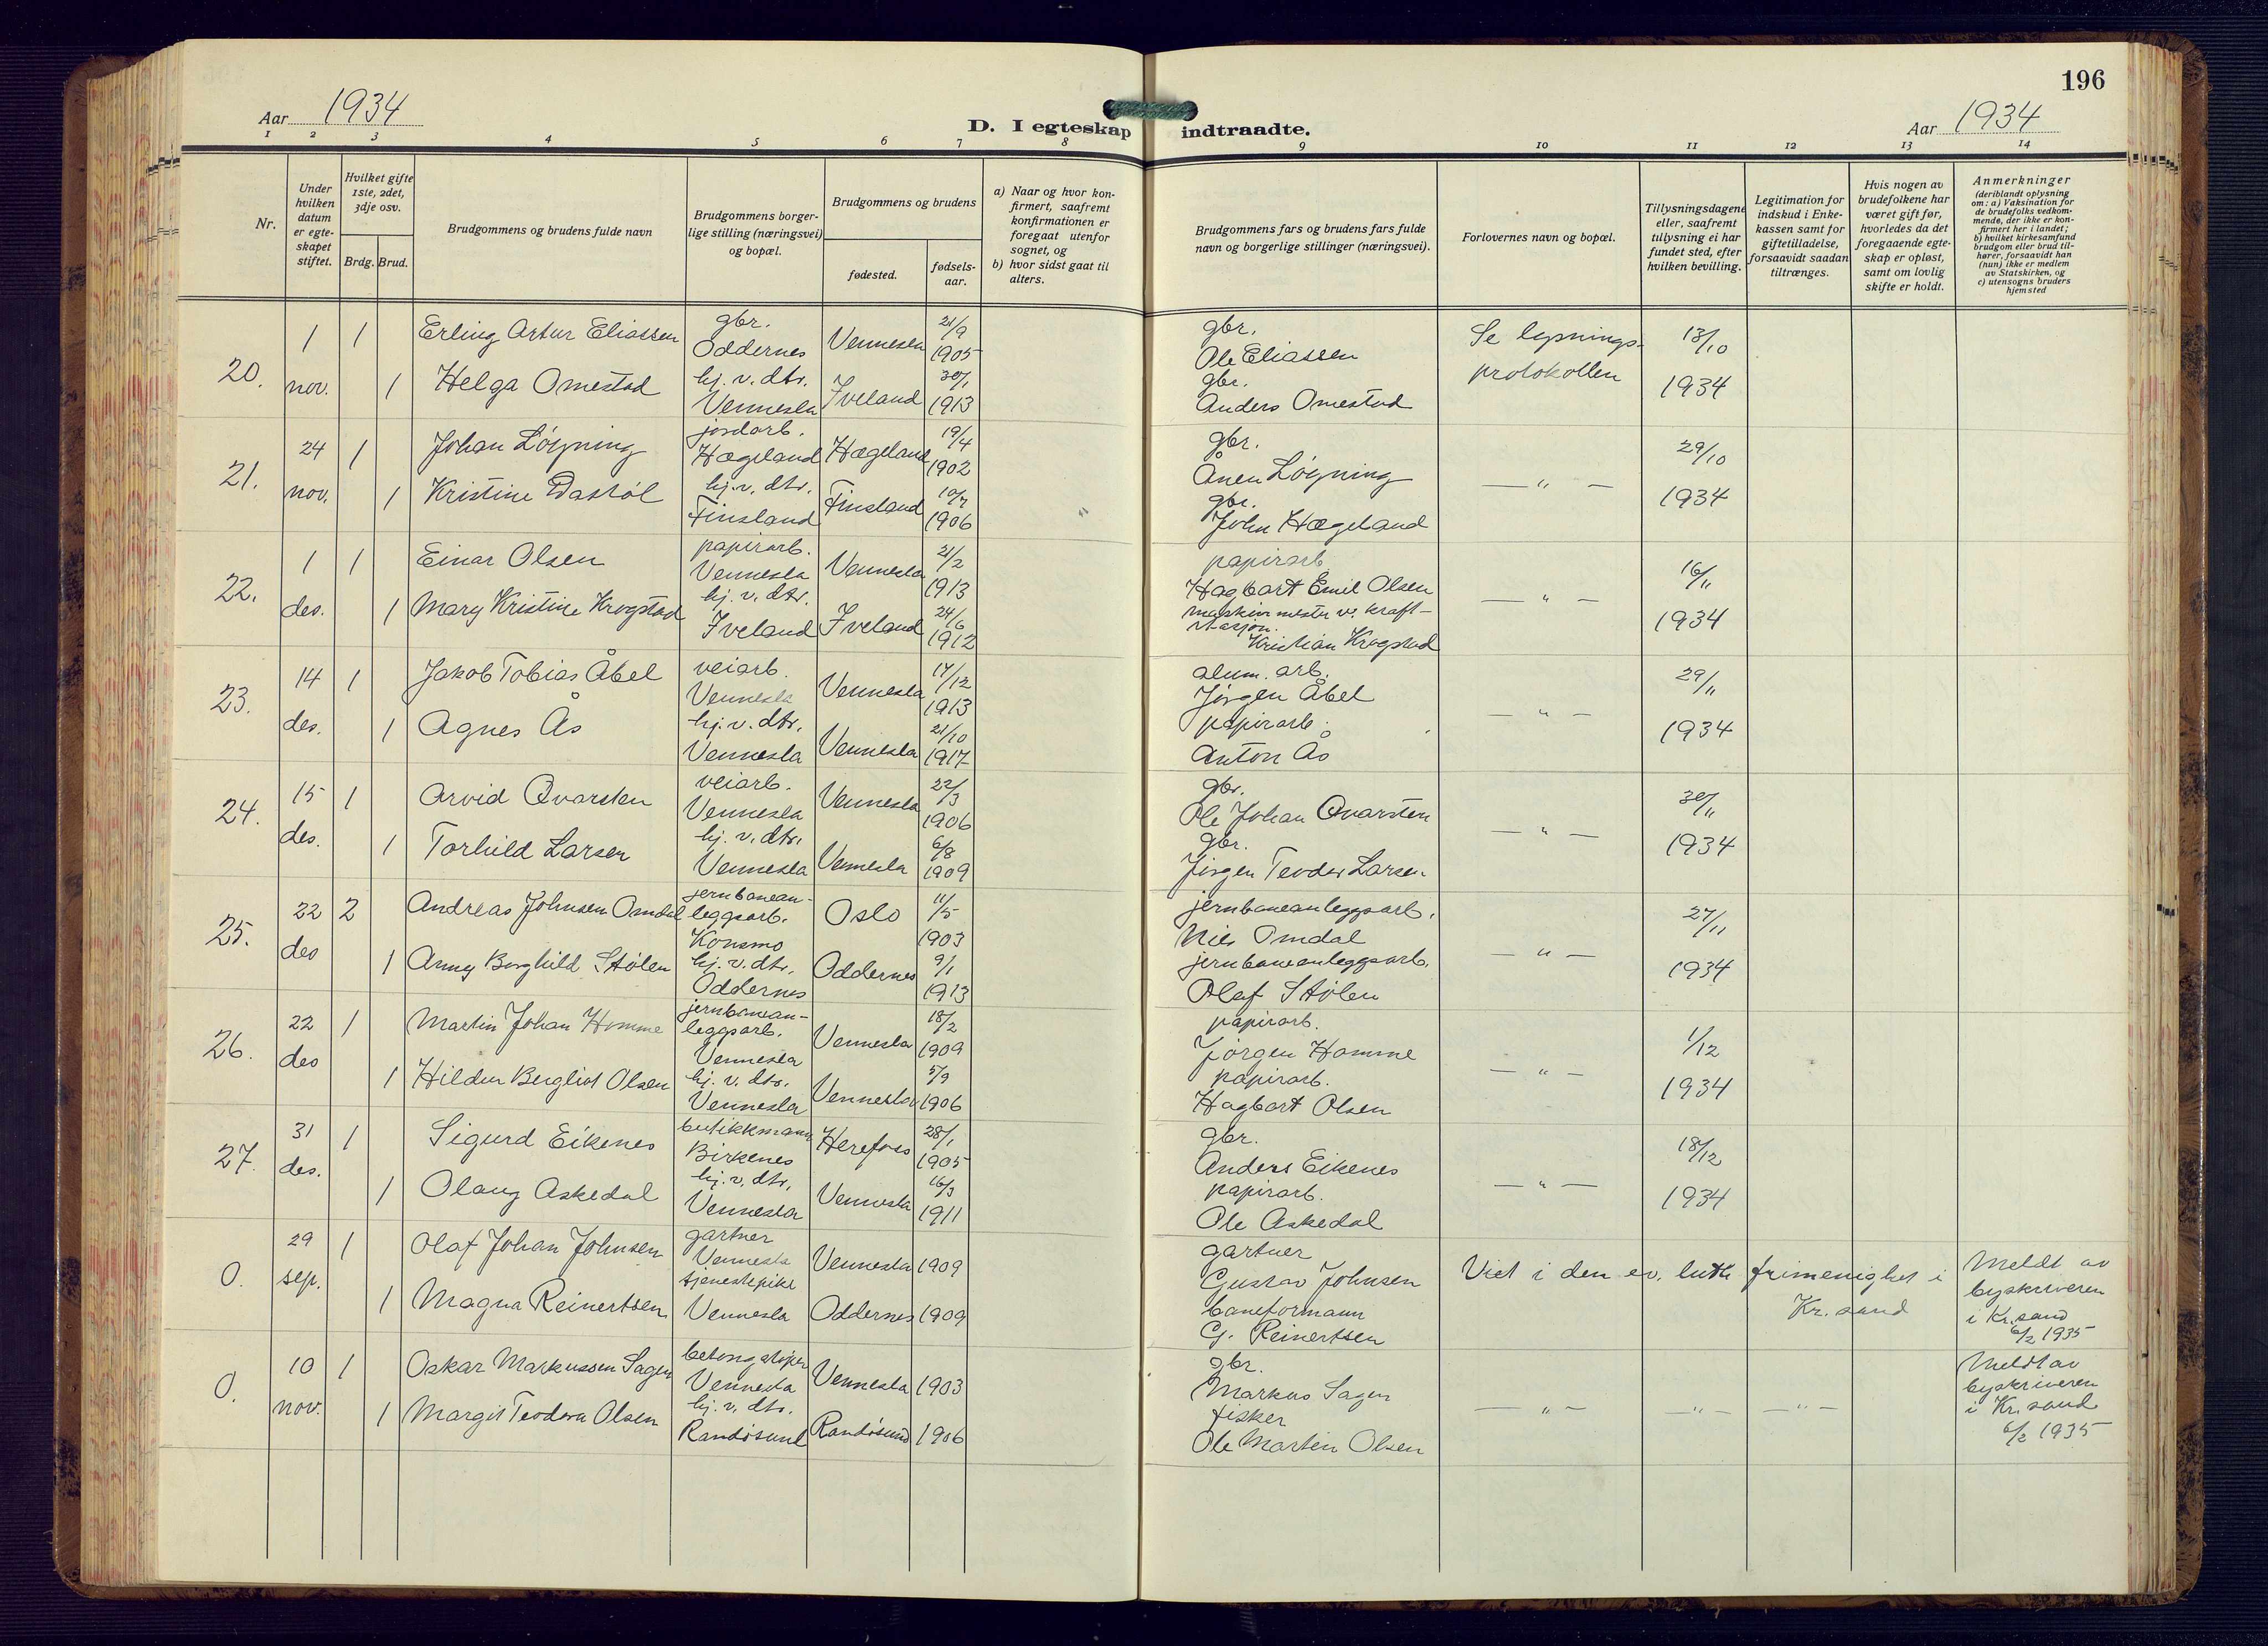 196
Aar 1934
D. I egteskap indtraadte.
Aar 1934
1 2 3 4 5 6 7 8 9 10 11 12 13 14
Nr.
Under hvilken datum er egteskapet stiftet.
Hvilket gifte 1ste, 2det, 3dje osv.
Brdg. Brud.
Brudgommens og brudens fulde navn
Brudgommens borgerlige stilling (næringsvei) og bopæl.
Brudgommens og brudens
fødested.
fødselsaar.
a) Naar og hvor konfirmert, saafremt konfirmationen er foregaat utenfor sognet, og
b) hvor sidst gaat til alters.
Brudgommens fars og brudens fars fulde navn og borgerlige stillinger (næringsvei).
Forlovernes navn og bopæl.
Tillysningsdagene eller, saafremt tillysning ei har fundet sted, efter hvilken bevilling.
Legitimation for indskud i Enkekassen samt for giftetilladelse, forsaavidt saadan tiltrænges.
Hvis nogen av brudefolkene har været gift før, hvorledes da det foregaaende egteskap er opløst, samt om lovlig skifte er holdt.
Anmerkninger
(deriblandt oplysning om: a) Vaksination for de brudefolks vedkommende, der ikke er konfirmert her i landet; b) hvilket kirkesamfund brudgom eller brud tilhører, forsaavidt han (hun) ikke er medlem av Statskirken, og c) utensogns bruders hjemsted
20. 1 nov. 1 Erling Artur Eliassen gbr. Oddernes Vennesla 21/9 1905 gbr. Ole Eliassen Se lysningsprotokollen 13/10 1934
1 Helga Omestad hj. v. dtr. Vennesla Iveland 30/1 1913 gbr. Anders Omestad
21. 24 nov. 1 Johan Løyning jordarb. Hægeland Hægeland 19/4 1902 gbr. Ånen Løyning — " — 29/10 1934
1 Kristine Dastøl hj. v. dtr. Finsland Finsland 10/7 1906 gbr. John Hægeland
22. 1 des. 1 Einar Olsen papirarb. Vennesla Vennesla 21/2 1913 papirarb. Hagbart Emil Olsen — " — 16/11 1934
1 Mary Kristine Krogstad hj. v. dtr. Iveland Iveland 24/6 1912 maskinmester v. kraftstasjon. Kristian Krogstad
23. 14 des. 1 Jakob Tobias Åbel veiarb. Vennesla Vennesla 17/12 1913 alum. arb. Jørgen Åbel — " — 29/11 1934
1 Agnes Ås hj. v. dtr. Vennesla Vennesla 21/10 1917 papirarb. Anton Ås
24. 15 des. 1 Arvid Qvarsten veiarb. Vennesla Vennesla 22/3 1906 gbr. Ole Johan Qvarsten — " — 30/11 1934
1 Torhild Larsen hj. v. dtr. Vennesla Vennesla 6/8 1909 gbr. Jørgen Teodor Larsen
25. 22 des 2 Andreas Johnsen Omdal jernbaneanleggsarb. Konsmo Oslo 11/5 1903 jernbaneanleggsarb. Nils Omdal — " — 27/11 1934
1 Anny Borghild Stølen hj. v. dtr. Oddernes Oddernes 9/1 1913 jernbaneanleggsarb. Olaf Stølen
26. 22 des 1 Martin Johan Homme jernbaneanleggsarb. Vennesla Vennesla 18/2 1909 papirarb. Jørgen Homme — " — 1/12 1934
1 Hildur Bergliot Olsen hj. v. dtr. Vennesla Vennesla 5/9 1906 papirarb. Hagbart Olsen
27. 31 des. 1 Sigurd Eikenes butikkmann Birkenes Herefoss 28/1 1905 gbr. Anders Eikenes — " — 18/12 1934
1 Olaug Askedal hj. v. dtr. Vennesla Vennesla 16/3 1911 papirarb. Ole Askedal
0. 29 sep. 1 Olaf Johan Johnsen gartner Vennesla Vennesla 1909 gartner Gustav Johnsen Viet i den ev. luth frimenighet i Kr.sand Meldt av byskriveren i Kr.sand 6/2 1935
1 Magna Reinertsen tjenestepike Vennesla Oddernes 1909 baneformann G. Reinertsen
0. 10 nov. 1 Oskar Markussen Sagen betongstøper Vennesla Vennesla 1903 gbr. Markus Sagen — " — — " — — " — Meldt av byskriveren i Kr.sand 6/2 1935
1 Margit Teodora Olsen hj. v. dtr. Randøsund Randøsund 1906 fisker Ole Martin Olsen